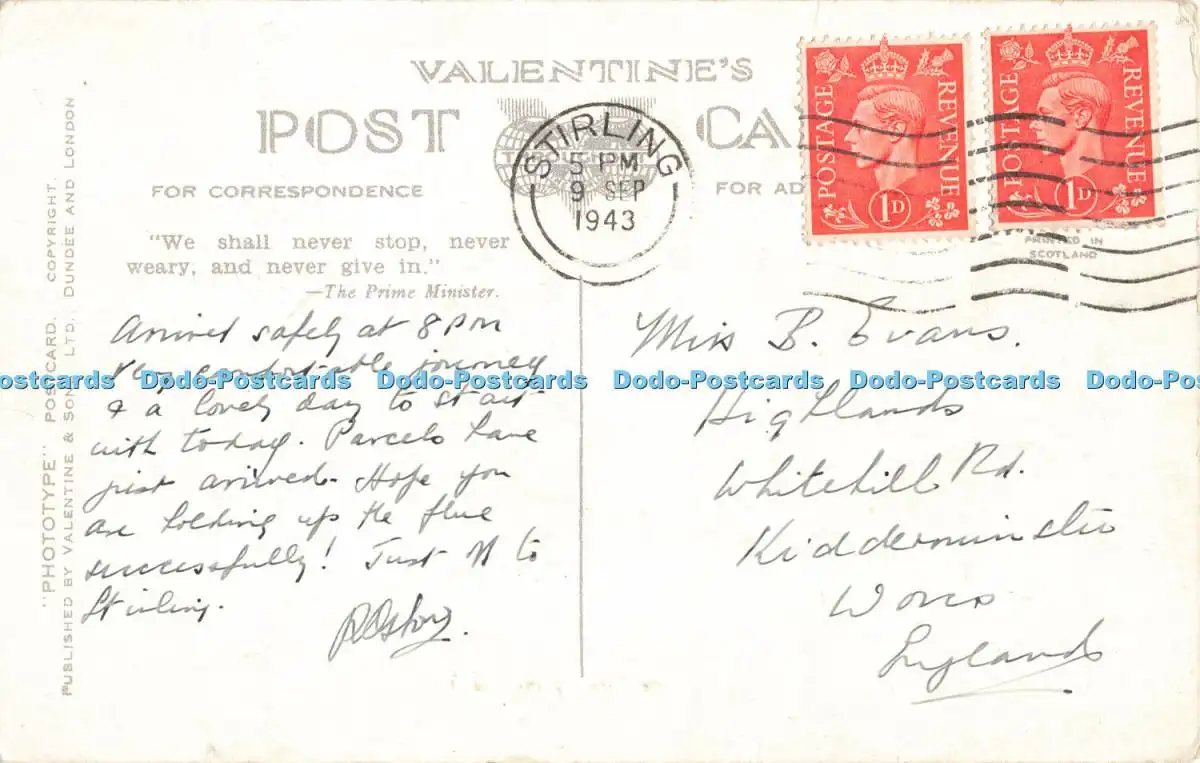 VALENTINE'S
POST CA
FOR CORRESPONDENCE
FOR AD
STIRLING
5 PM
9 SEP
1943
POSTAGE REVENUE
1D
POSTAGE REVENUE
1D
PRINTED IN
SCOTLAND
"We shall never stop, never
weary, and never give in."
—The Prime Minister.
Arrived safely at 8 PM
Very comfortable journey
& a lovely day to start
with today. Parcels have
just arrived. Hope you
are holding up the flue
successfully! Just off to
Stirling.
Miss B. Evans.
Highlands
Whitehill Rd.
Kidderminster
Worcs
England
"PHOTOTYPE" POSTCARD. COPYRIGHT.
PUBLISHED BY VALENTINE & SONS LTD. DUNDEE AND LONDON
Dodo-Postcards Dodo-Postcards Dodo-Postcards Dodo-Postcards Dodo-Postcards Dodo-Postcards